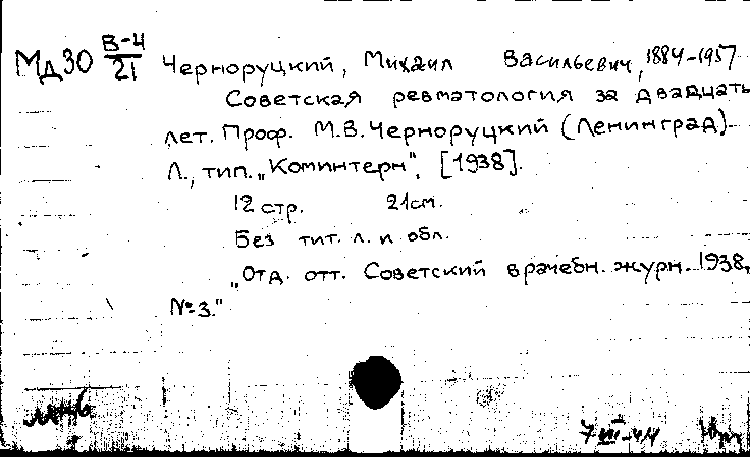 Мд30 В-4/21 Черноруцкий, Михаил Васильевич, 1884-1957
Советская ревматология за двадцать
лет. Проф. М.В. Черноруцкий (Ленинград).
Л., тип. „Коминтерн", [1938].
12 стр. 21см.
Без тит. л. и обл.
„Отд. отт. Советский врачебн. журн. 1938,
№3."
7 III-44